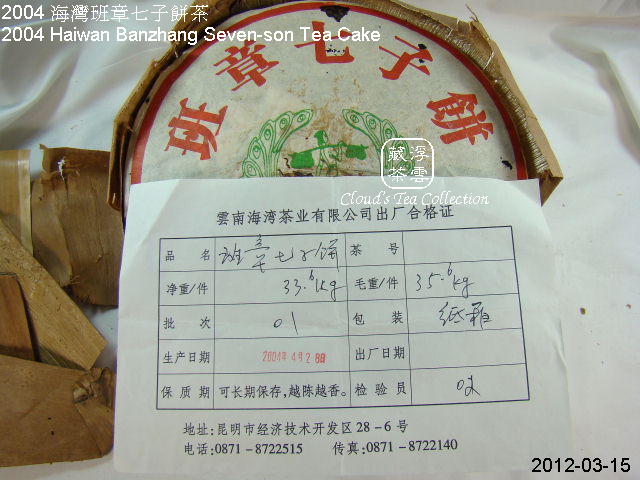 2004 海灣班章七子餅茶
2004 Haiwan Banzhang Seven-son Tea Cake
班章七子餅
藏浮
茶雲
Cloud's Tea Collection
雲南海湾茶业有限公司出厂合格证
品 名 班章七子饼 茶 号
净重/件 33.6kg 毛重/件 35.6kg
批 次 01 包 装 纸箱
生产日期 2004年4月28日 出厂日期
保 质 期 可长期保存,越陈越香。 检 验 员
地址:昆明市经济技术开发区28-6号
电话:0871-8722515 传真:0871-8722140
2012-03-15